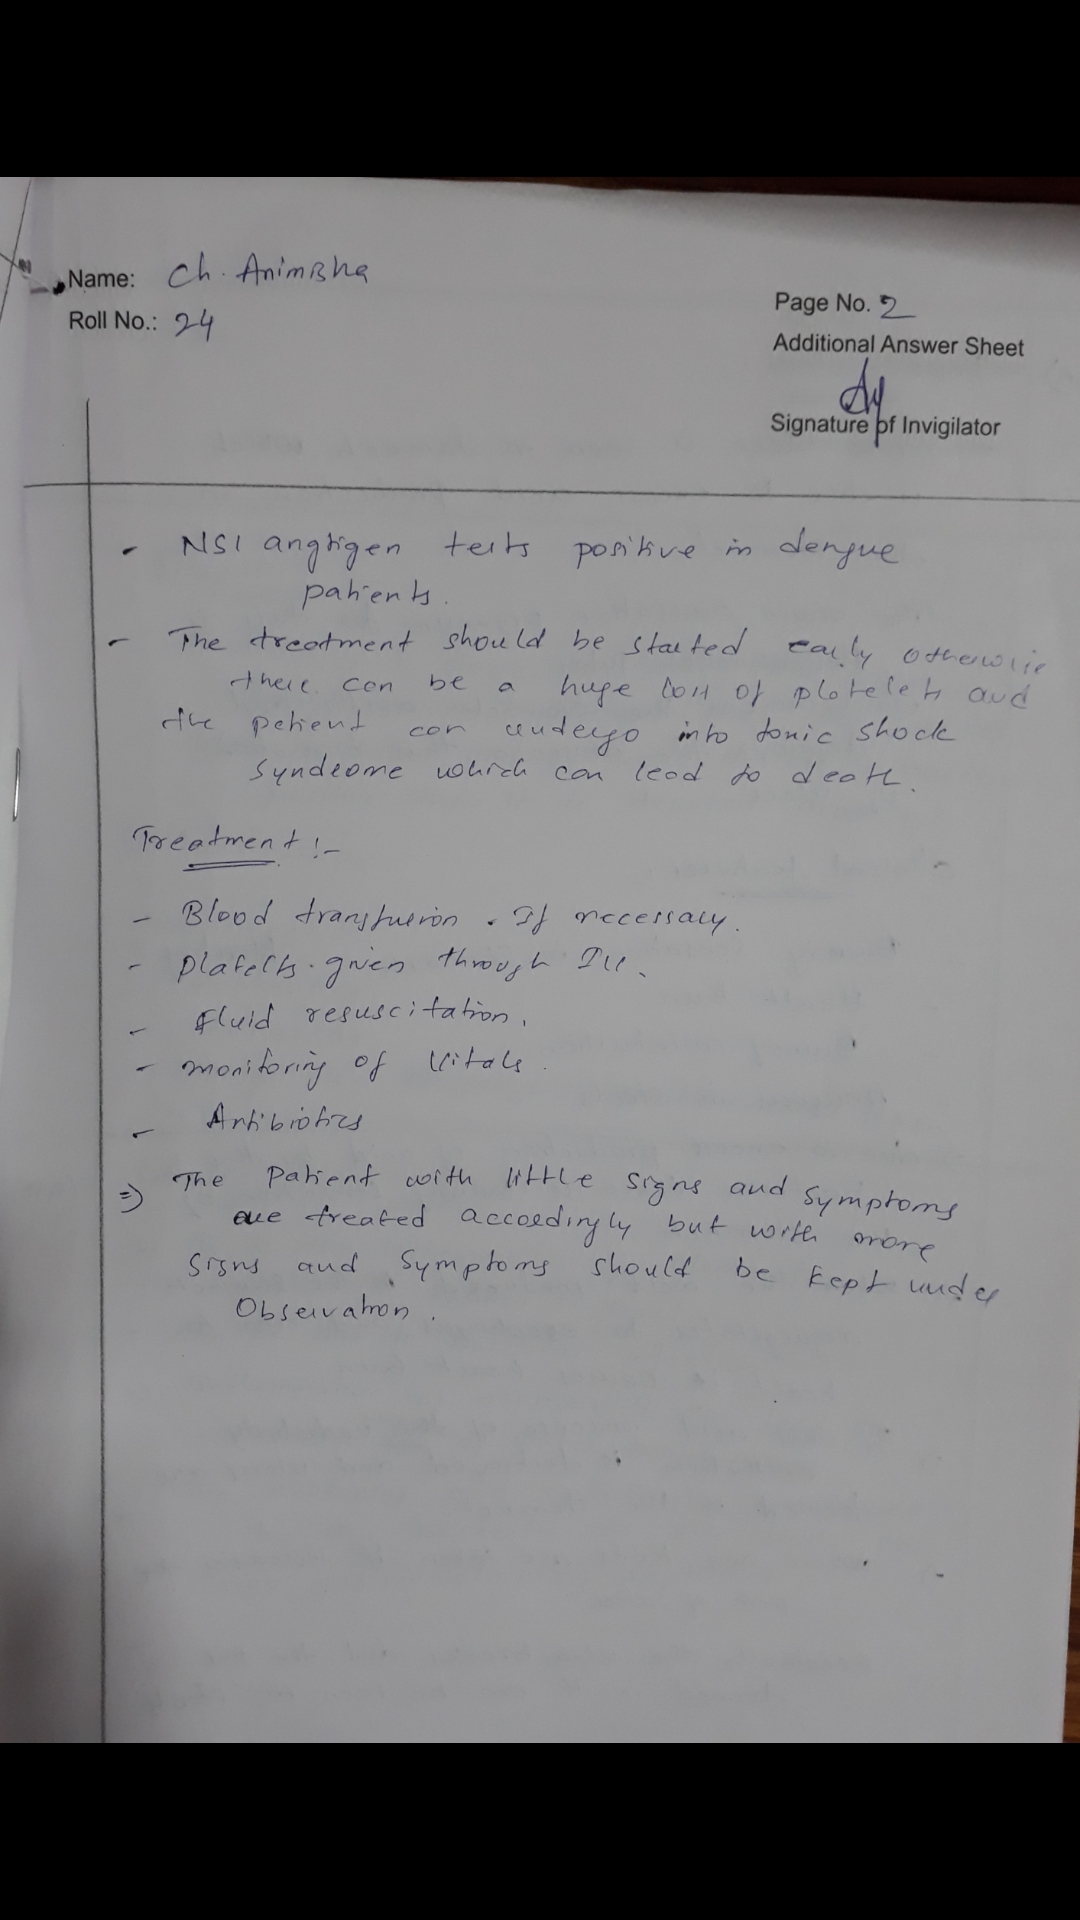 Name: Ch. Animisha
Roll No.: 24
Page No. 2
Additional Answer Sheet
Signature of Invigilator
- NS1 angtigen tests positive in dengue
patients.
- The treatment should be started early otherwise
there can be a huge loss of platelets and
the patient can undergo into tonic shock
syndrome which can lead to death.
Treatment :-
- Blood transfusion . If necessary.
- Platelts given through IV.
- Fluid resuscitation.
- monitoring of Vitals.
- Antibiotics
=> The Patient with little signs and symptoms
are treated accordingly but with more
signs and symptoms should be kept under
Observation.